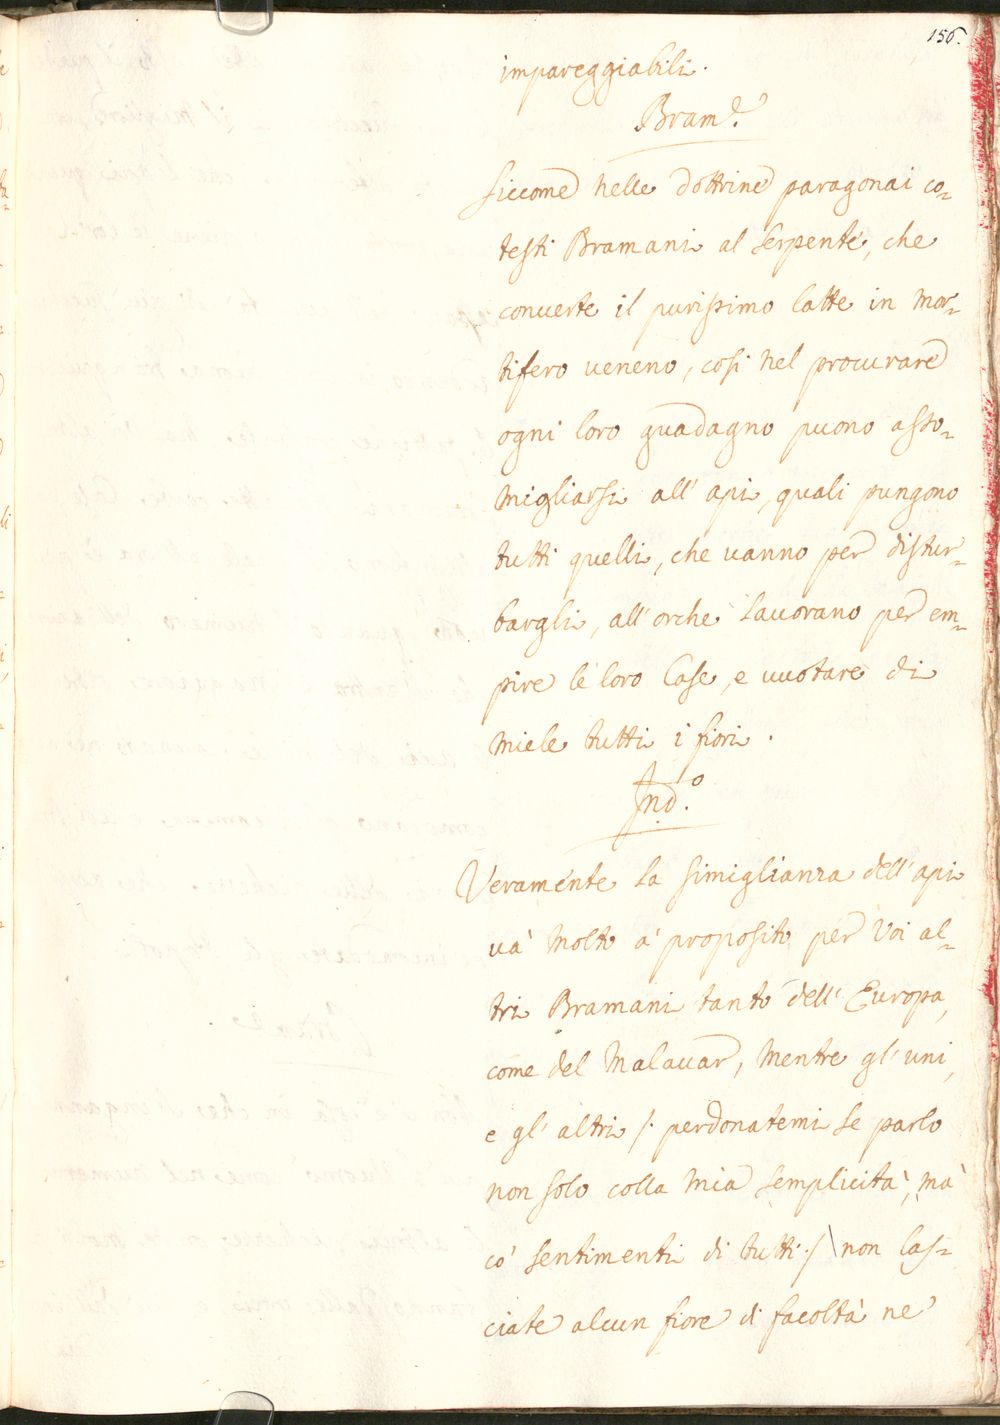 156.
impareggiabili.
Bram.e
Siccome nelle dottrine paragonai co-
testi Bramani al serpente, che
conuerte il purissimo latte in mor-
tifero ueneno, così nel procurare
ogni loro guadagno puono asso-
migliarsi all' api, quali pungono
tutti quelli, che uanno per distur-
bargli, all' orche lauorano per em-
pire le loro Case, e uuotare di
miele tutti i fiori.
Ind.o
Veramente la simiglianza dell' api
uà molto à proposito per Voi al-
tri Bramani tanto dell' Europa,
come del Malauar, mentre gl' uni,
e gl' altri /. perdonatemi se parlo
non solo colla mia semplicità, mà
co' sentimenti di tutti ./ non las-
ciate alcun fiore di facoltà ne